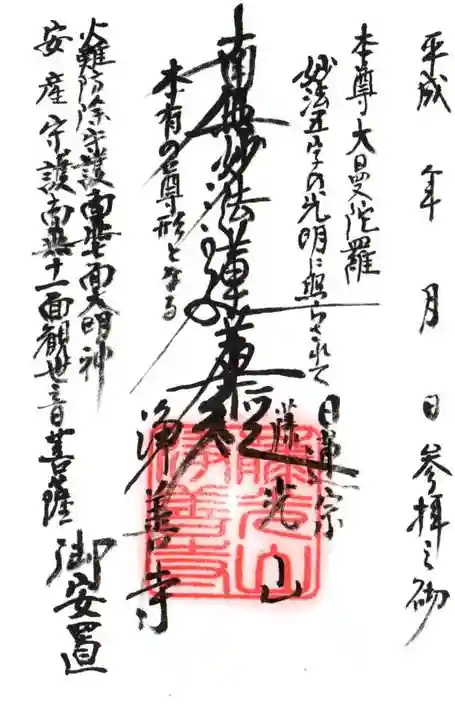 平成 年 月 日 参拝之砌
本尊大曼陀羅
妙法五字の光明に照らされて
南無妙法蓮華経
本有の尊形となる
日蓮宗
藤光山
浄善寺
火難防除守護南無七面大明神
安産守護南無十一面観世音菩薩
御安置
藤光山
浄善寺